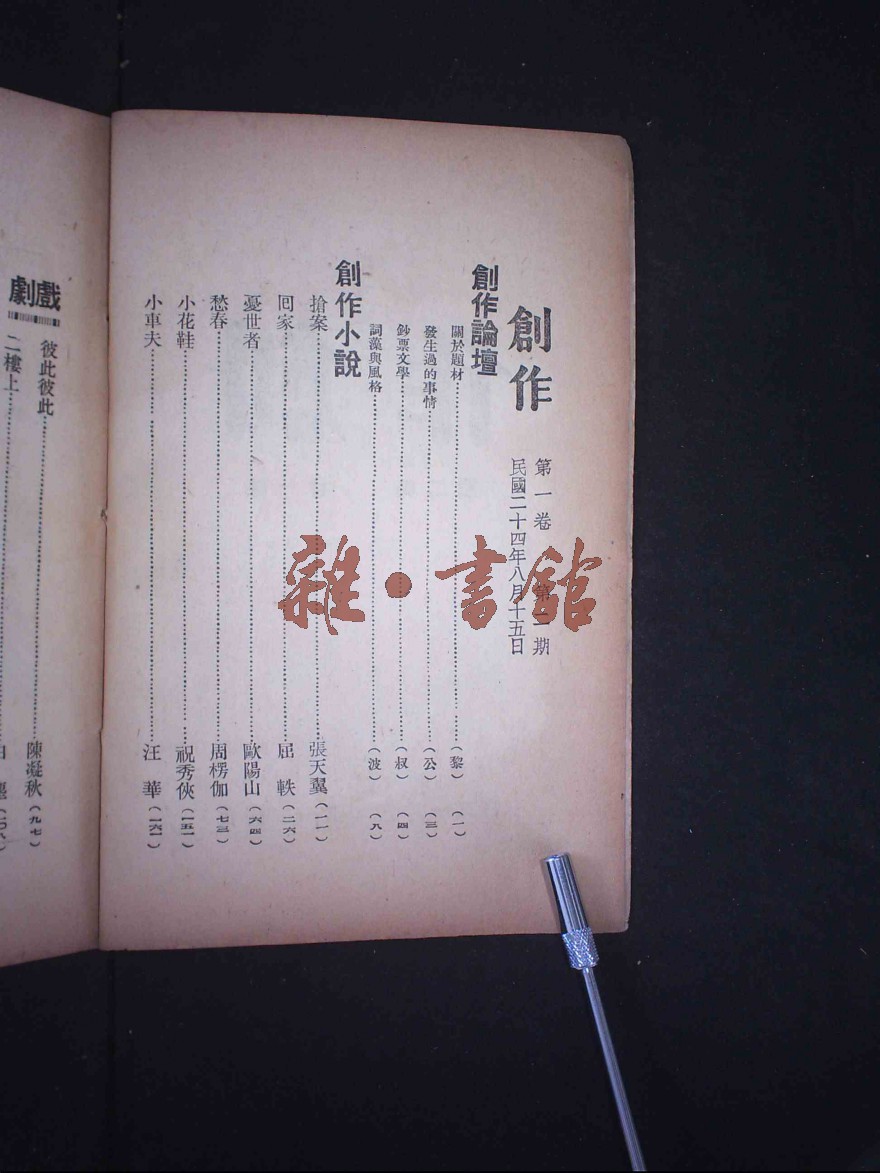 創作
第一卷 第二期
民國二十四年八月十五日
創作論壇
關於題材……(黎)(一)
發生過的事情……(公)(三)
鈔票文學……(叔)(四)
詞藻與風格……(波)(八)
創作小說
搶案……張天翼(一一)
囘家……屈軼(二六)
憂世者……歐陽山(六四)
愁春……周楞伽(七三)
小花鞋……祝秀俠(一五一)
小車夫……汪華(一六一)
戲劇
彼此彼此……陳凝秋(九七)
二樓上……塵(一〇八)
雜·書館